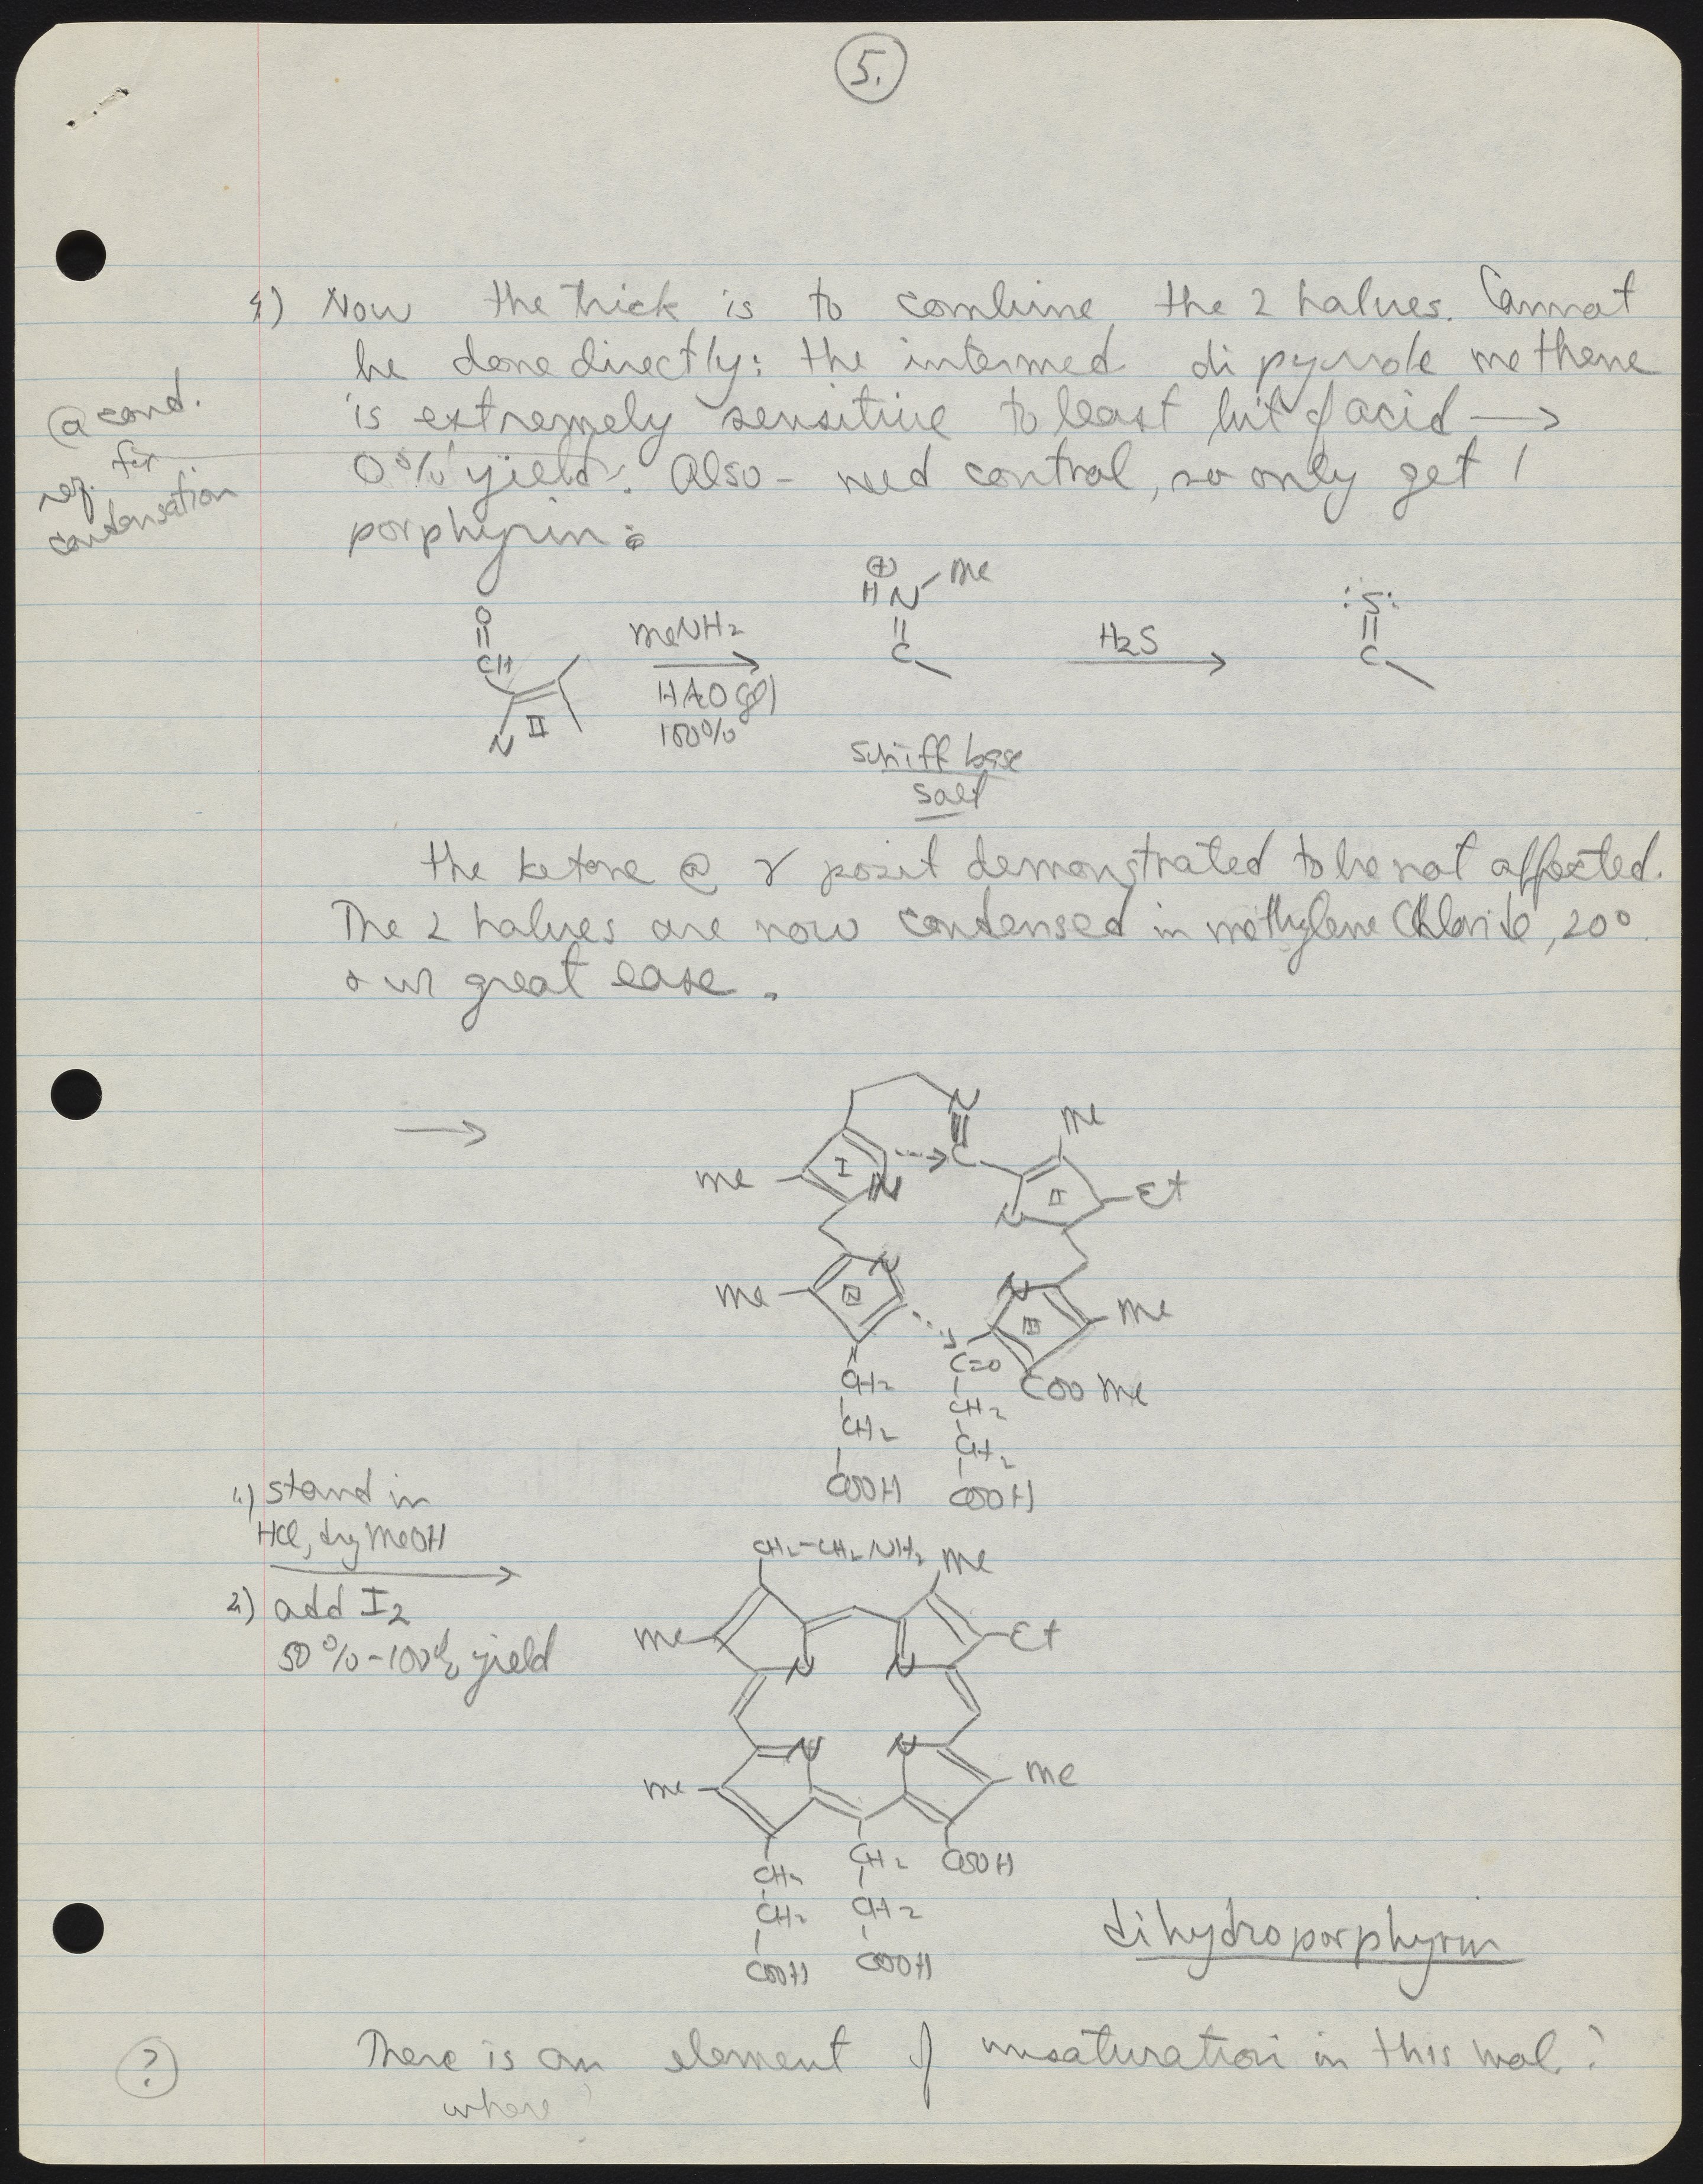 5.
4) Now the trick is to combine the 2 halves. Cannot
be done directly: the intermed dipyrrole methene
is extremely sensitive to least bit of acid →
0% yield. Also - need control, so only get 1
porphyrin:
@ cond.
for
req.
condensation
O
CH
N
II
MeNH2
HAO
100%
⊕
HN Me
C
Schiff base
salt
H2S
:S:
C
the ketone @ γ posit demonstrated to be not affected.
The 2 halves are now condensed in methylene chloride, 20°
& w great ease.
→
N
Me
Me I N C
II Et
N
N N
Me IV III Me
C=O
CH2 CH2 COOMe
CH2 CH2
COOH COOH
1.) stand in
HCl, dry MeOH
2.) add I2
50%-100% yield
CH2-CH2NH2 Me
Me Et
N N
N N
Me Me
CH2 CH2 COOH
CH2 CH2
COOH COOH
dihydroporphyrin
? There is an element of unsaturation in this mol?
where